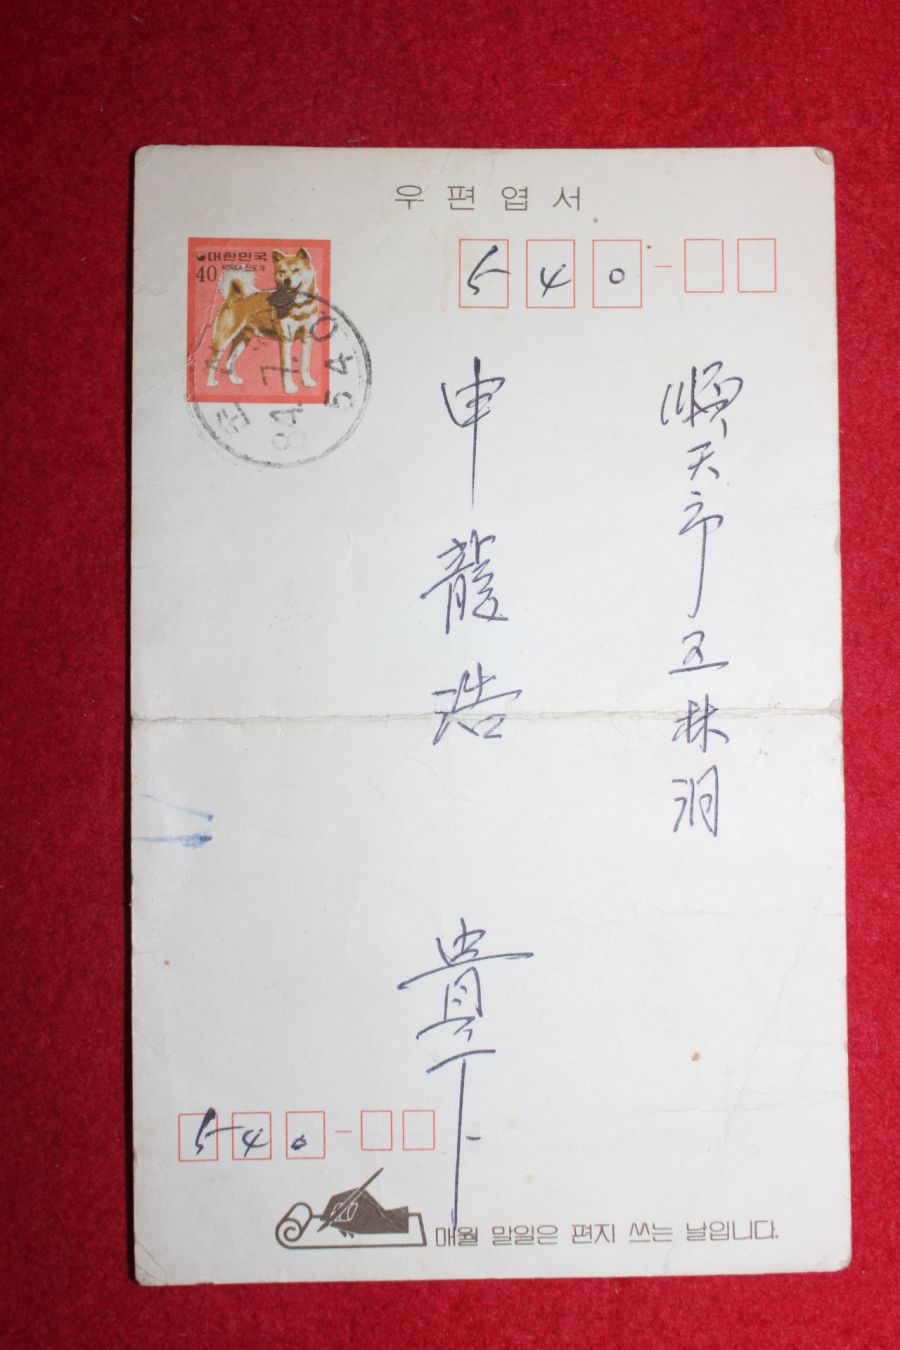 우편엽서
대한민국
40 KOREA 진도개
540
84. 7.
540
順天市 五林洞
申龍浩
貴下
540
매월 말일은 편지 쓰는 날입니다.